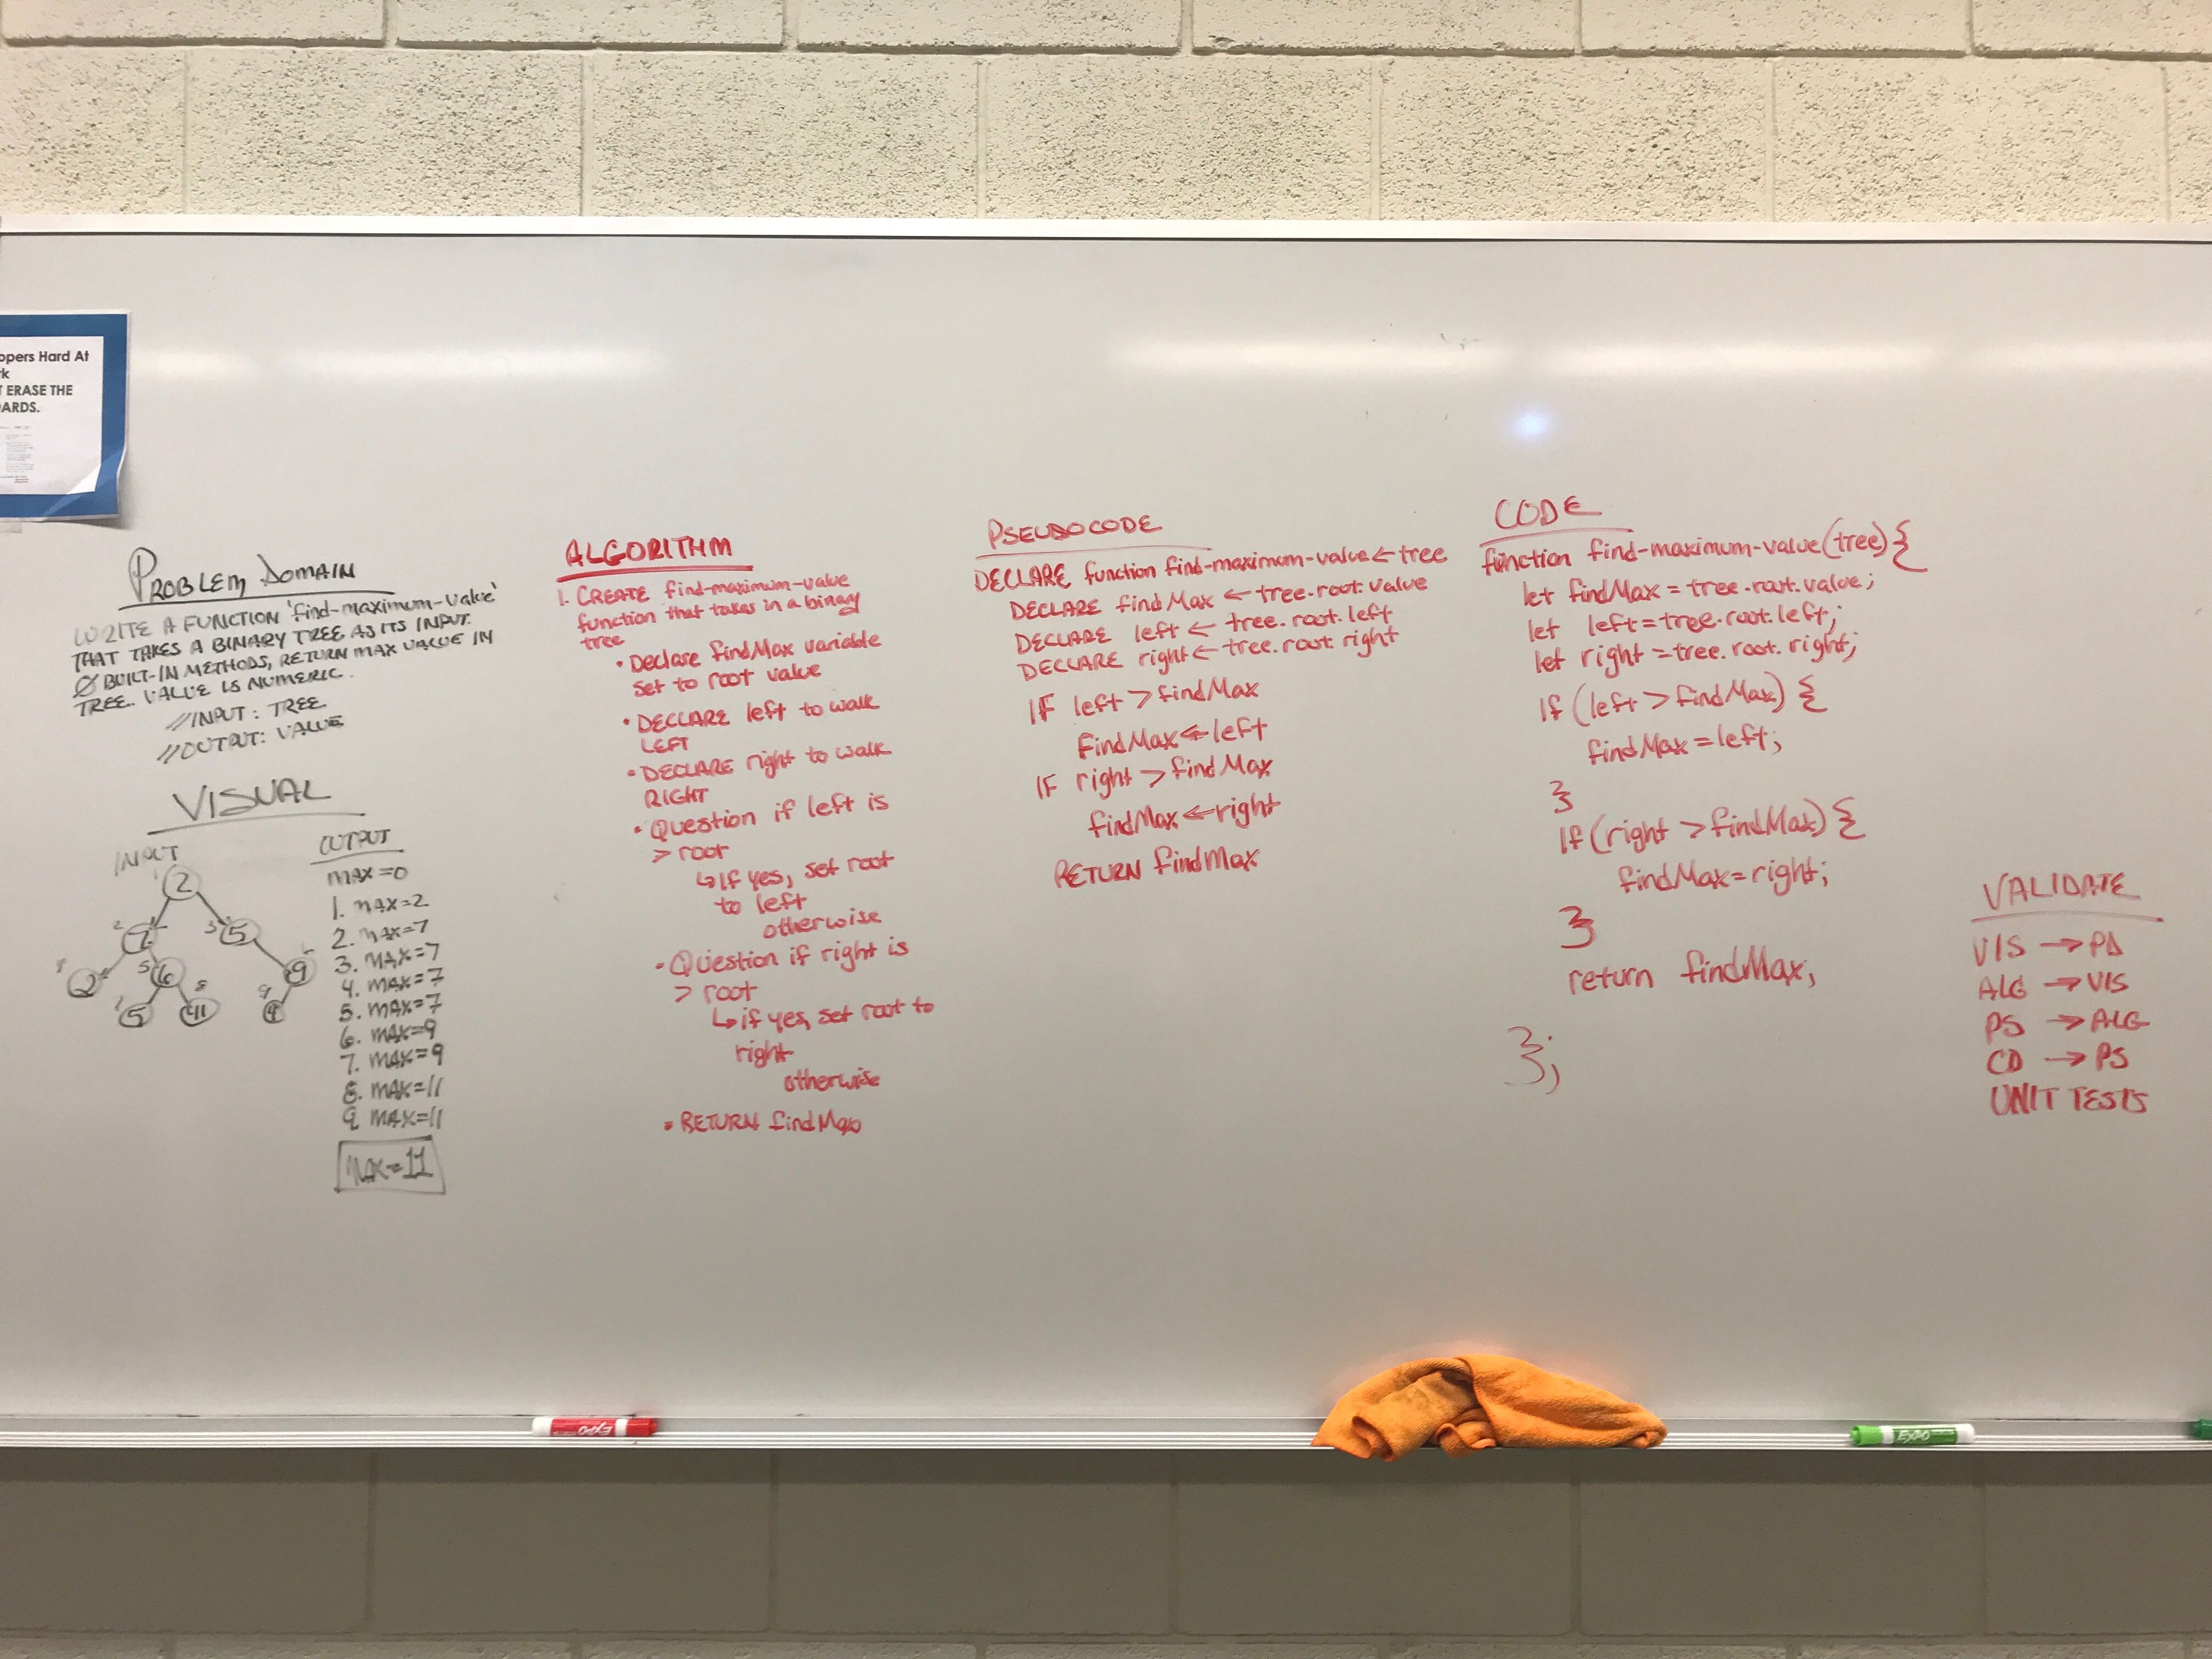 opers Hard At
rk
T ERASE THE
ARDS.
PROBLEM DOMAIN
WRITE A FUNCTION 'find-maximum-value'
THAT TAKES A BINARY TREE AS ITS INPUT.
Ø BUILT-IN METHODS, RETURN MAX VALUE IN
TREE. VALUE IS NUMERIC.
//INPUT: TREE
//OUTPUT: VALUE
VISUAL
INPUT
1
2
2
7
3
5
2
5
6
9
5
8
11
9
4
OUTPUT
MAX=0
1. MAX=2
2. MAX=7
3. MAX=7
4. MAX=7
5. MAX=7
6. MAX=9
7. MAX=9
8. MAX=11
9. MAX=11
MAX=11
ALGORITHM
1. CREATE find-maximum-value
function that takes in a binary
tree
• Declare findMax variable
set to root value
• DECLARE left to walk
LEFT
• DECLARE right to walk
RIGHT
• Question if left is
> root
↳ If yes, set root
to left
otherwise
• Question if right is
> root
↳ if yes, set root to
right
otherwise
• RETURN findMax
PSEUDOCODE
DECLARE function find-maximum-value ← tree
DECLARE findMax ← tree.root.value
DECLARE left ← tree.root.left
DECLARE right ← tree.root.right
IF left > findMax
findMax ← left
IF right > findMax
findMax ← right
RETURN findMax
CODE
function find-maximum-value(tree) {
let findMax = tree.root.value;
let left = tree.root.left;
let right = tree.root.right;
If (left > findMax) {
findMax = left;
}
If (right > findMax) {
findMax = right;
}
return findMax;
};
VALIDATE
VIS → PD
ALG → VIS
PS → ALG
CD → PS
UNIT TESTS
EXPO
EXPO